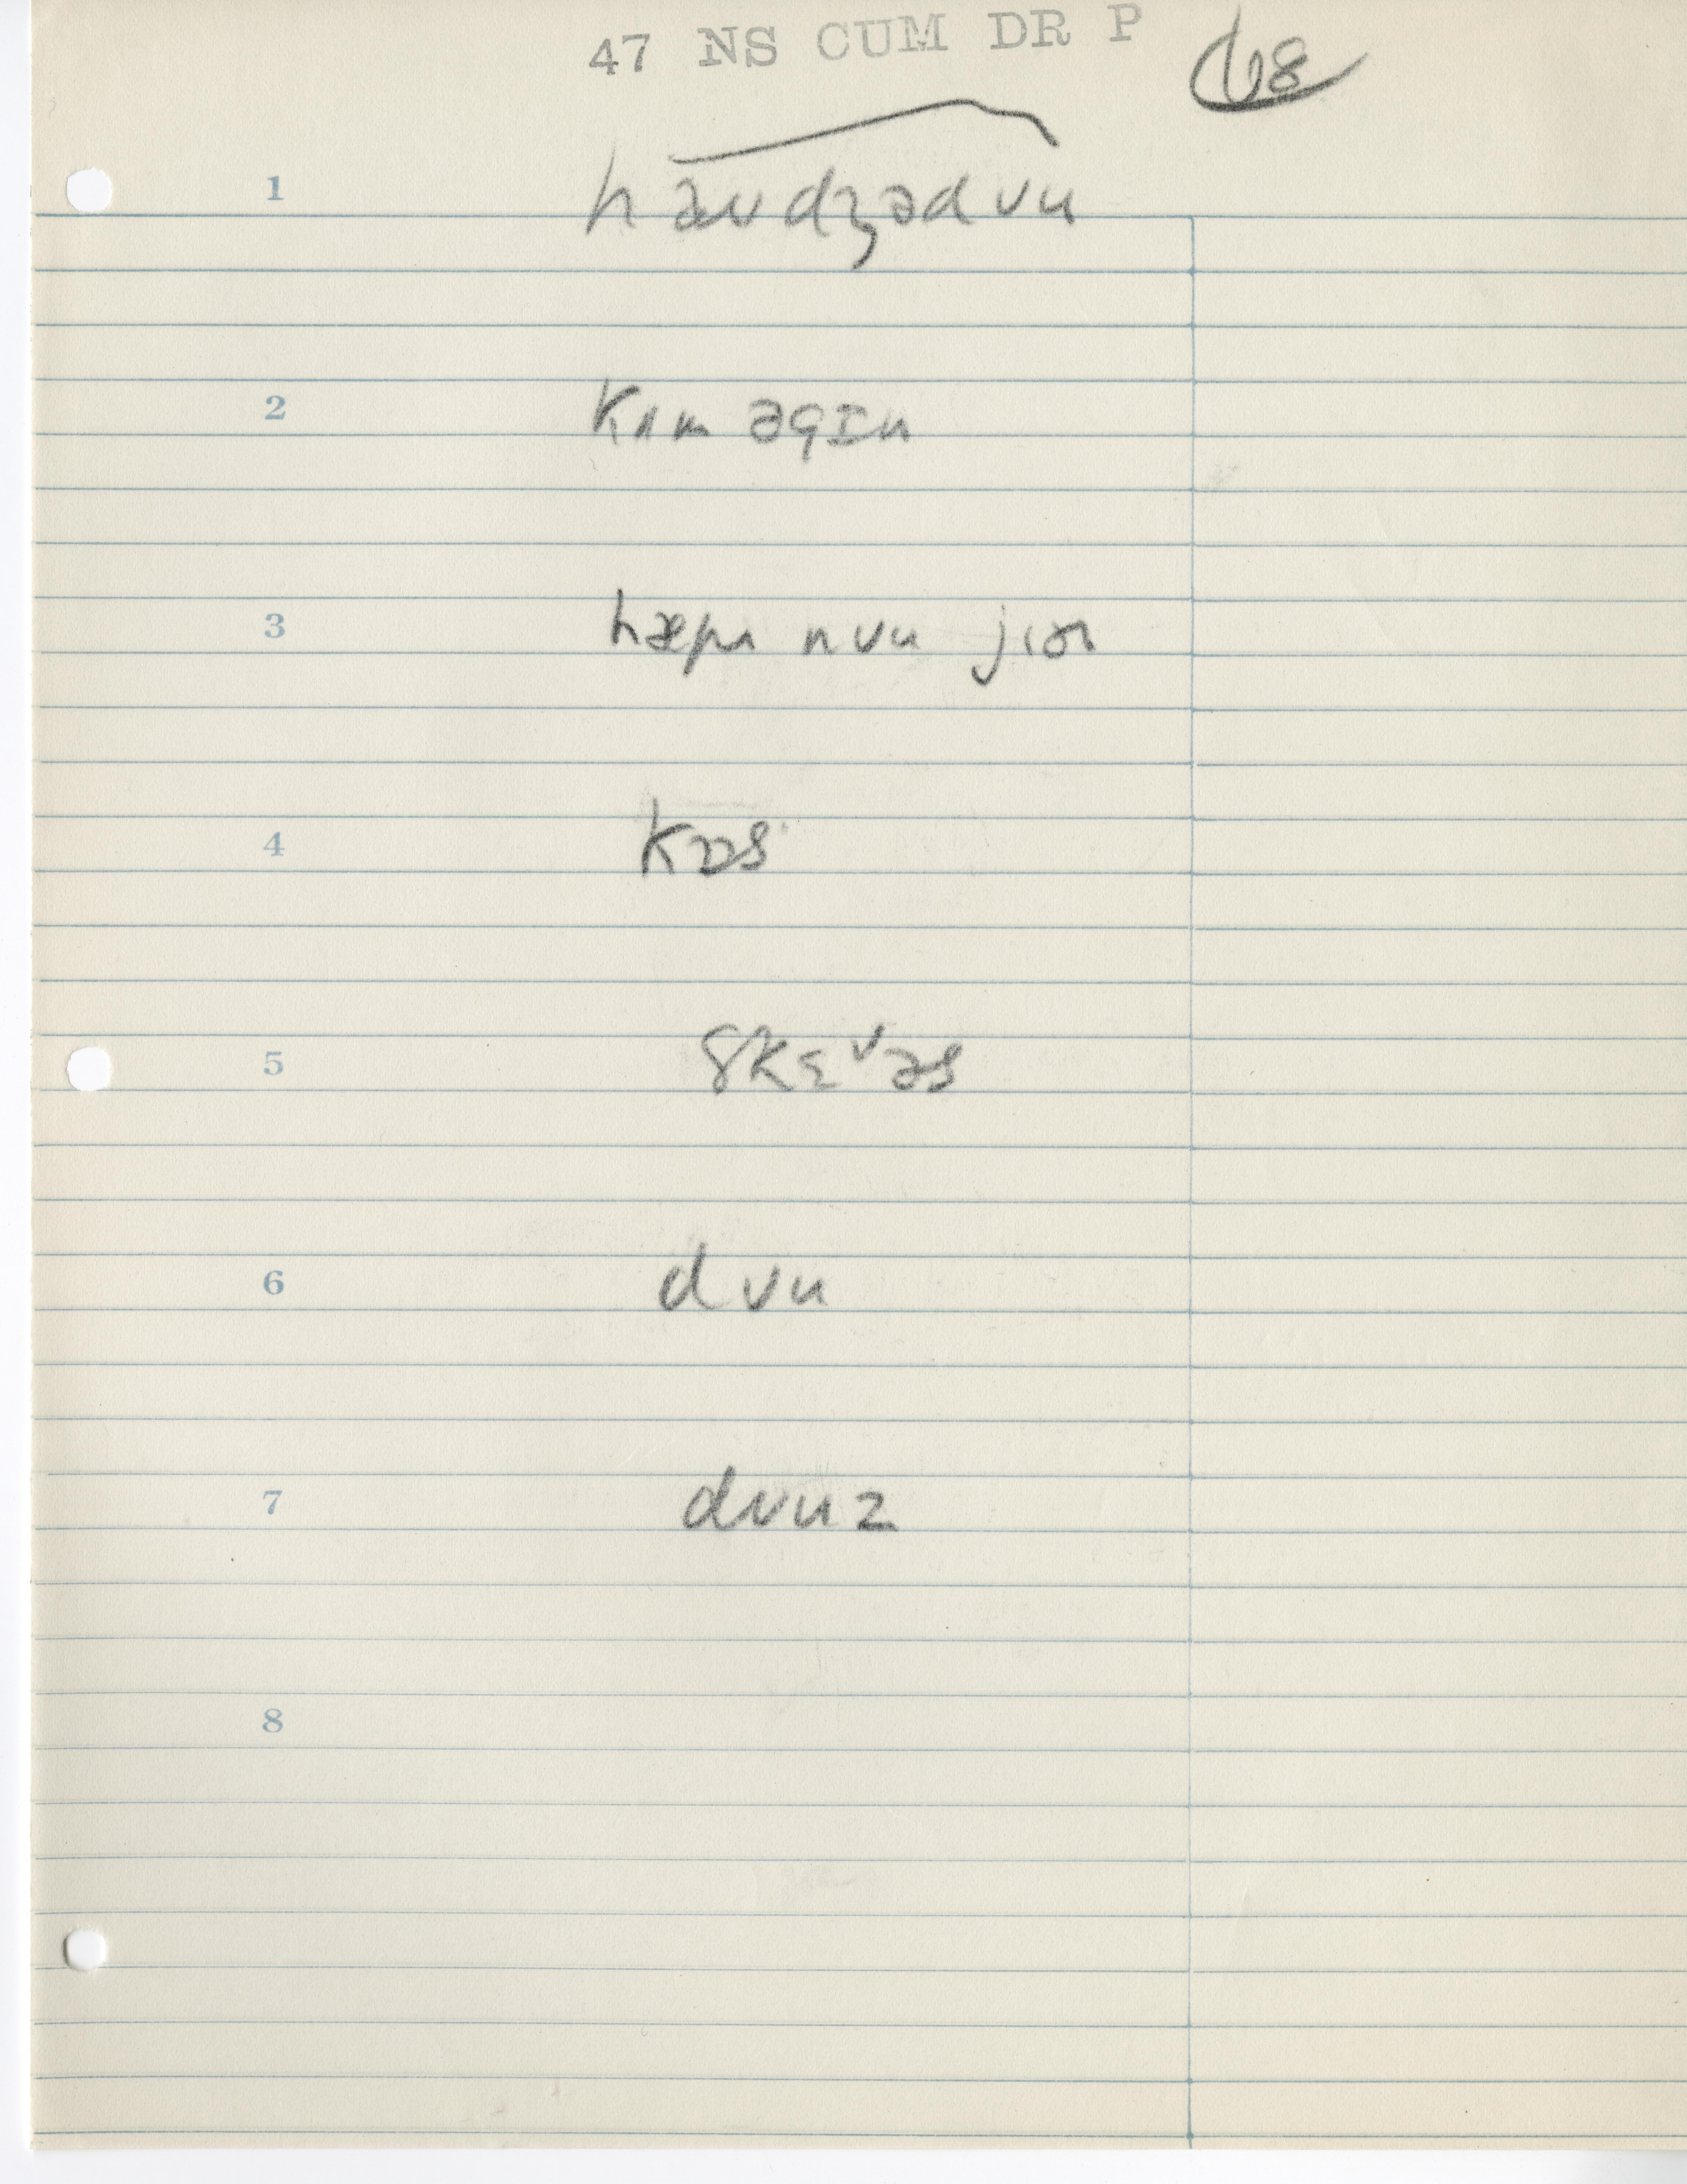 47 NS CUM DR P 68
1 haʊdʒədʊu
2 kʌməgɪn
3 hæpɪ nʊu jɪər
4 kɒs
5 skɛʊəs
6 dʊu
7 dʊuz
8